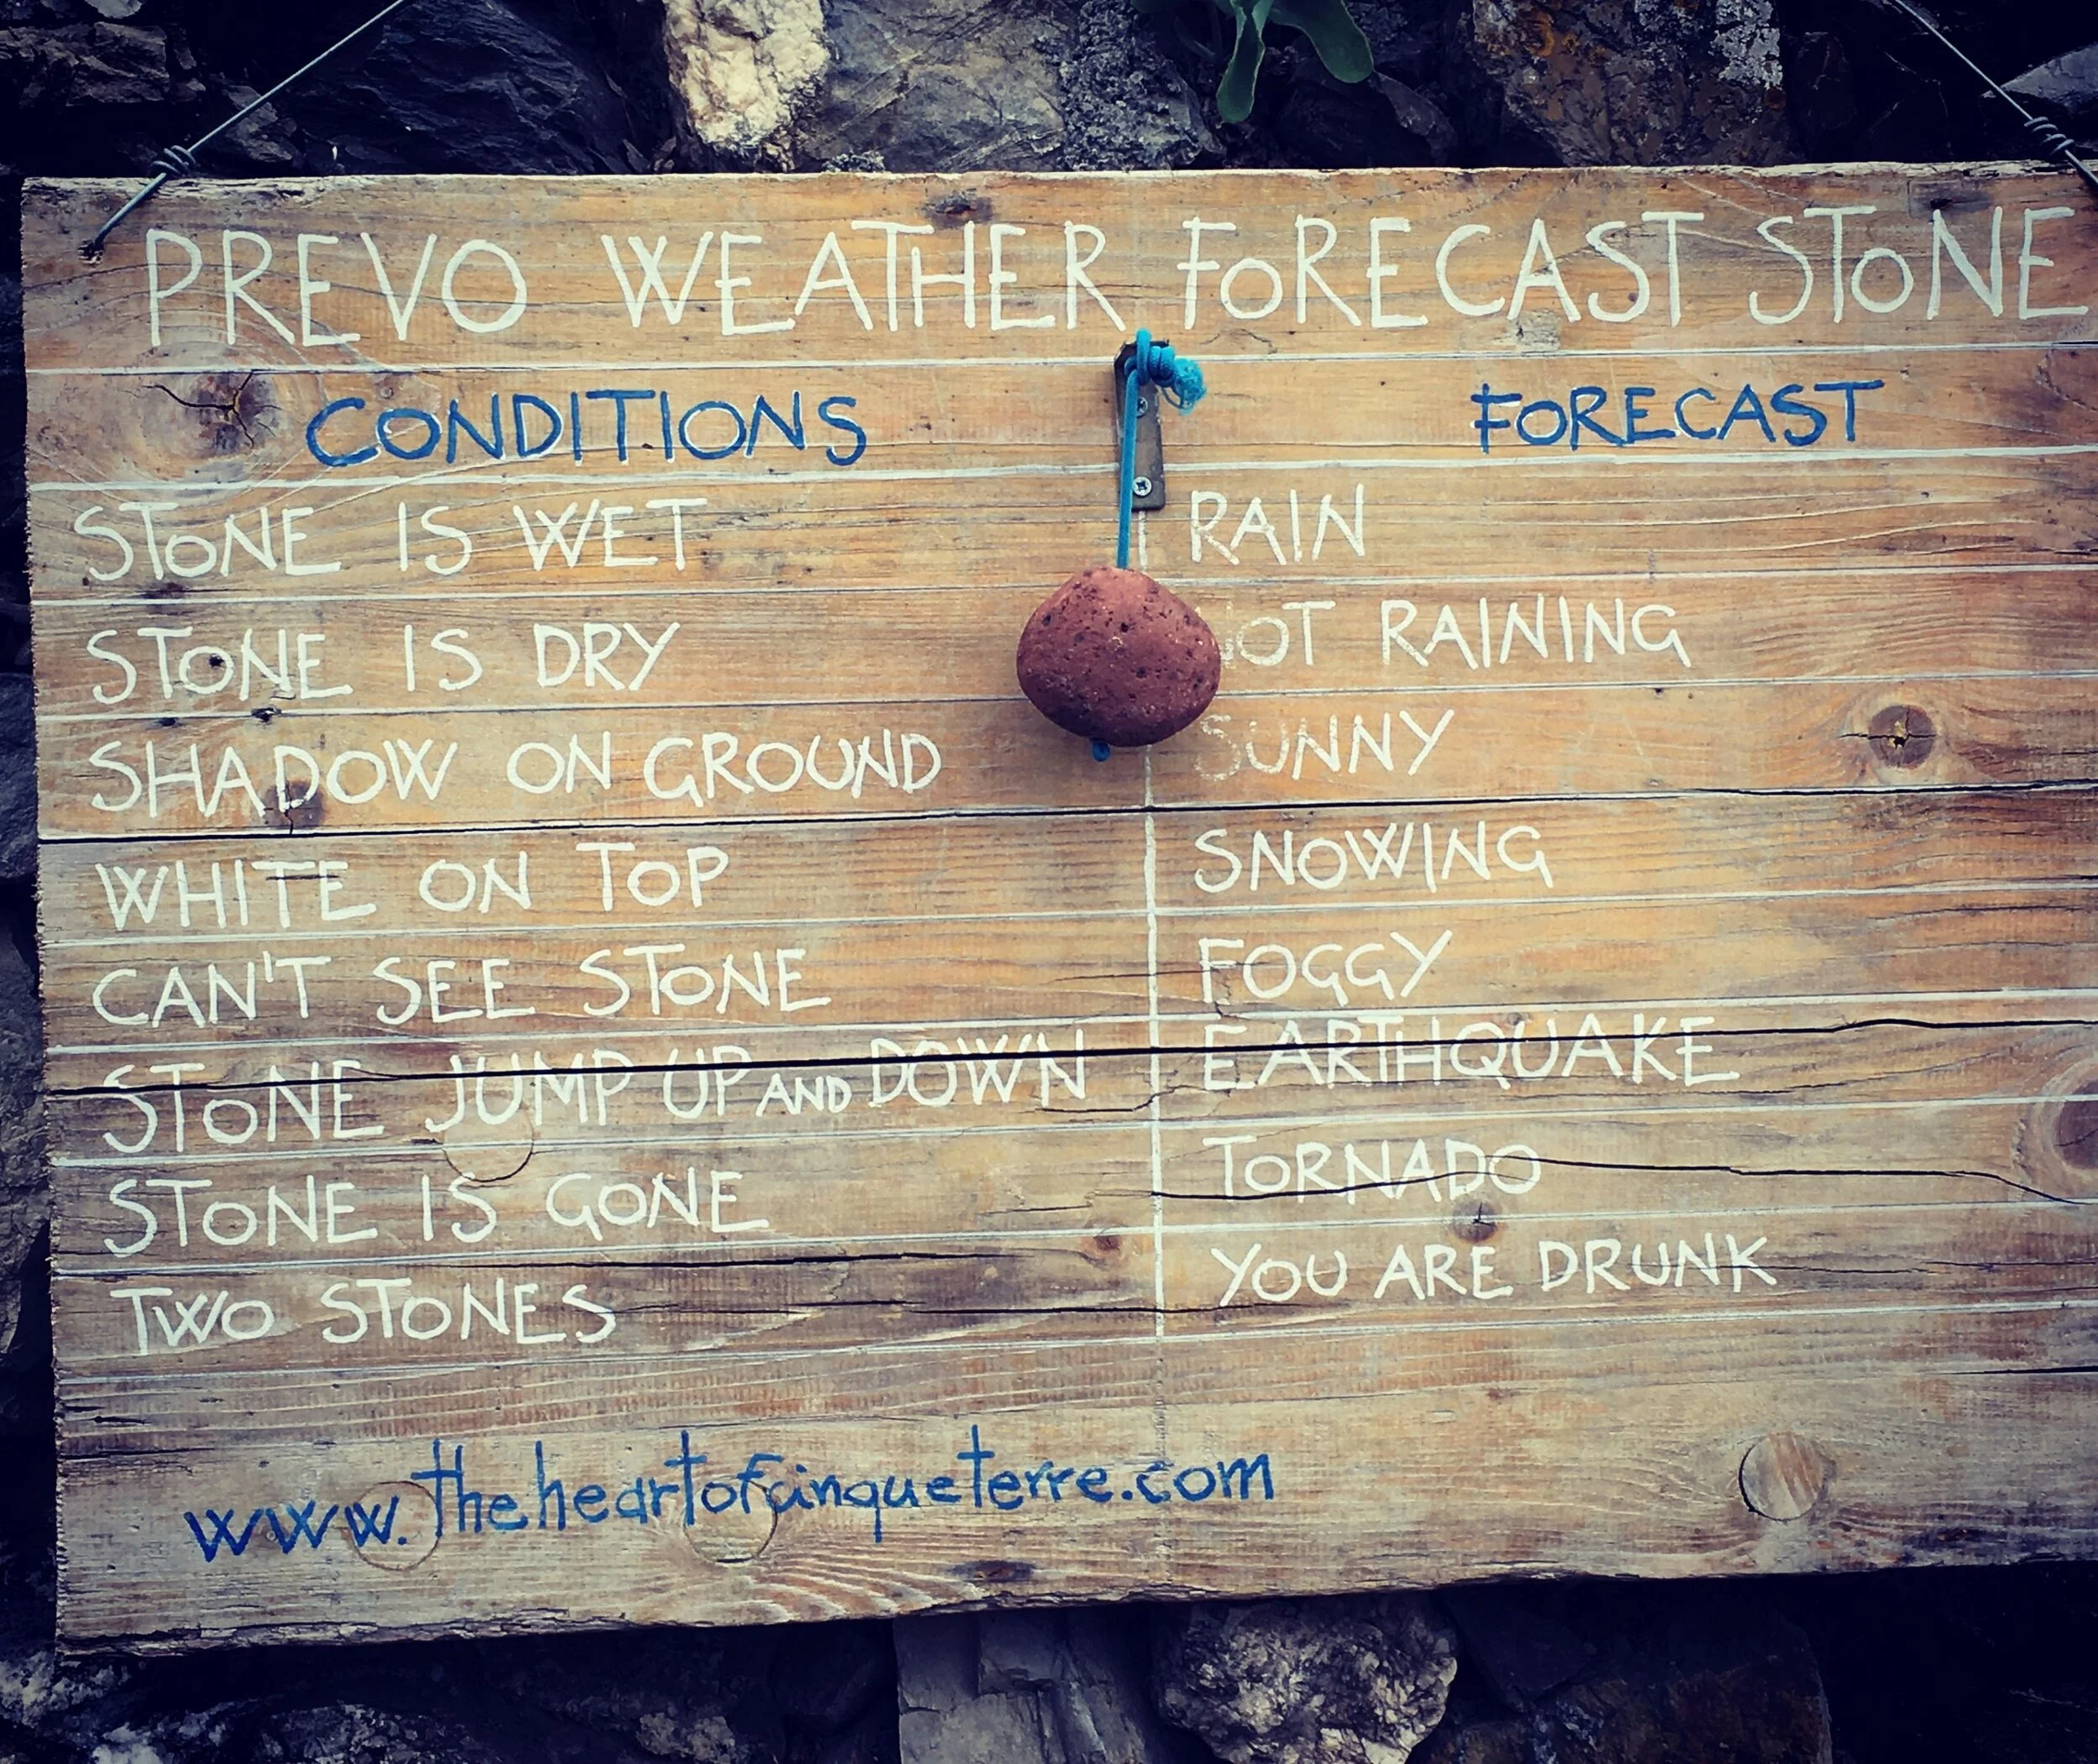 PREVO WEATHER FORECAST STONE
CONDITIONS FORECAST
STONE IS WET RAIN
STONE IS DRY NOT RAINING
SHADOW ON GROUND SUNNY
WHITE ON TOP SNOWING
CAN'T SEE STONE FOGGY
STONE JUMP UP AND DOWN EARTHQUAKE
STONE IS GONE TORNADO
TWO STONES YOU ARE DRUNK
www.theheartofcinqueterre.com